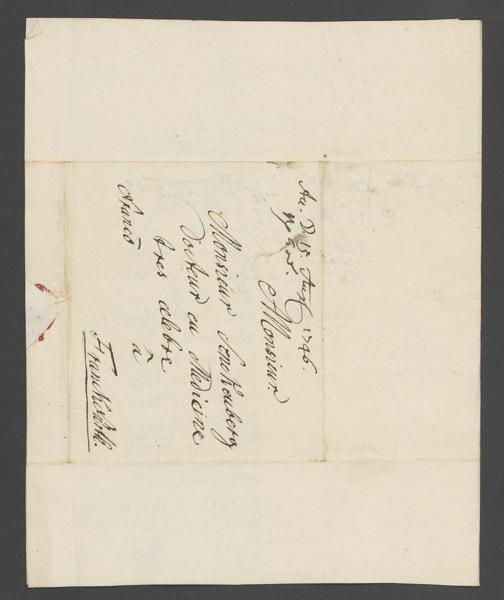 Au. D. 15. Aug 1746.
Monsieur
Monsieur Senckenberg
Docteur en Medicine
tres celebre
a
franco
Franckfort.